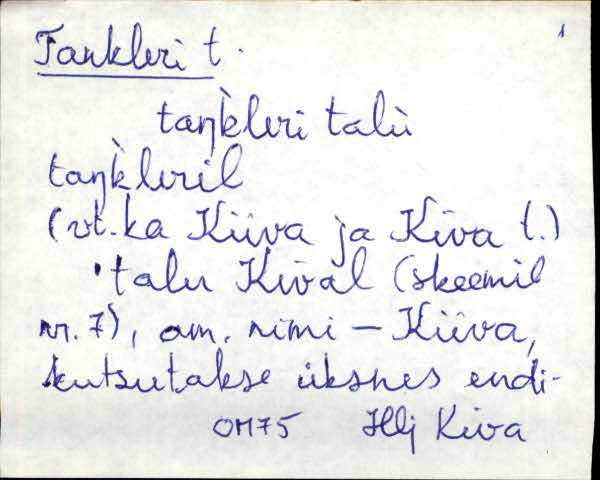 Tankleri t.
1
taŋk̀leri talù
taŋk̀leril
(vt. ka Kiiva ja Kiva t.)
talu Kival (skeemil
nr. 7), am. nimi – Kiiva,
kutsutakse üksnes endi-
OM75 Hlj Kiva